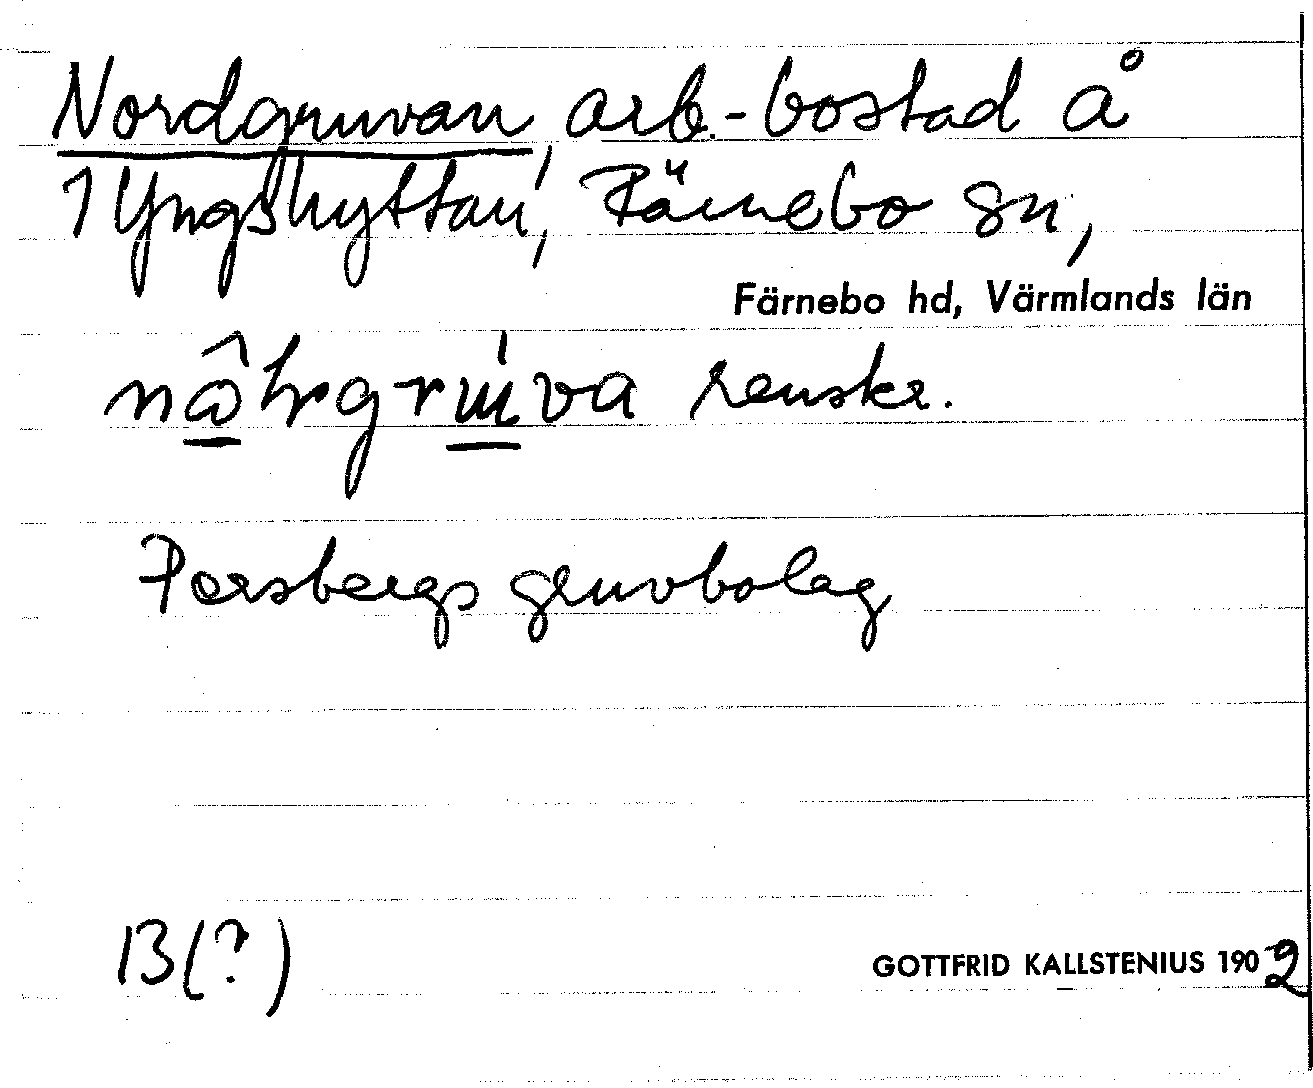 Nordgruvan, arb.-bostad å
1 Yngshyttan, Färnebo sn,
Färnebo hd, Värmlands län
renskr.
Persbergs gruvbolag
B(?)
GOTTFRID KALLSTENIUS 1902